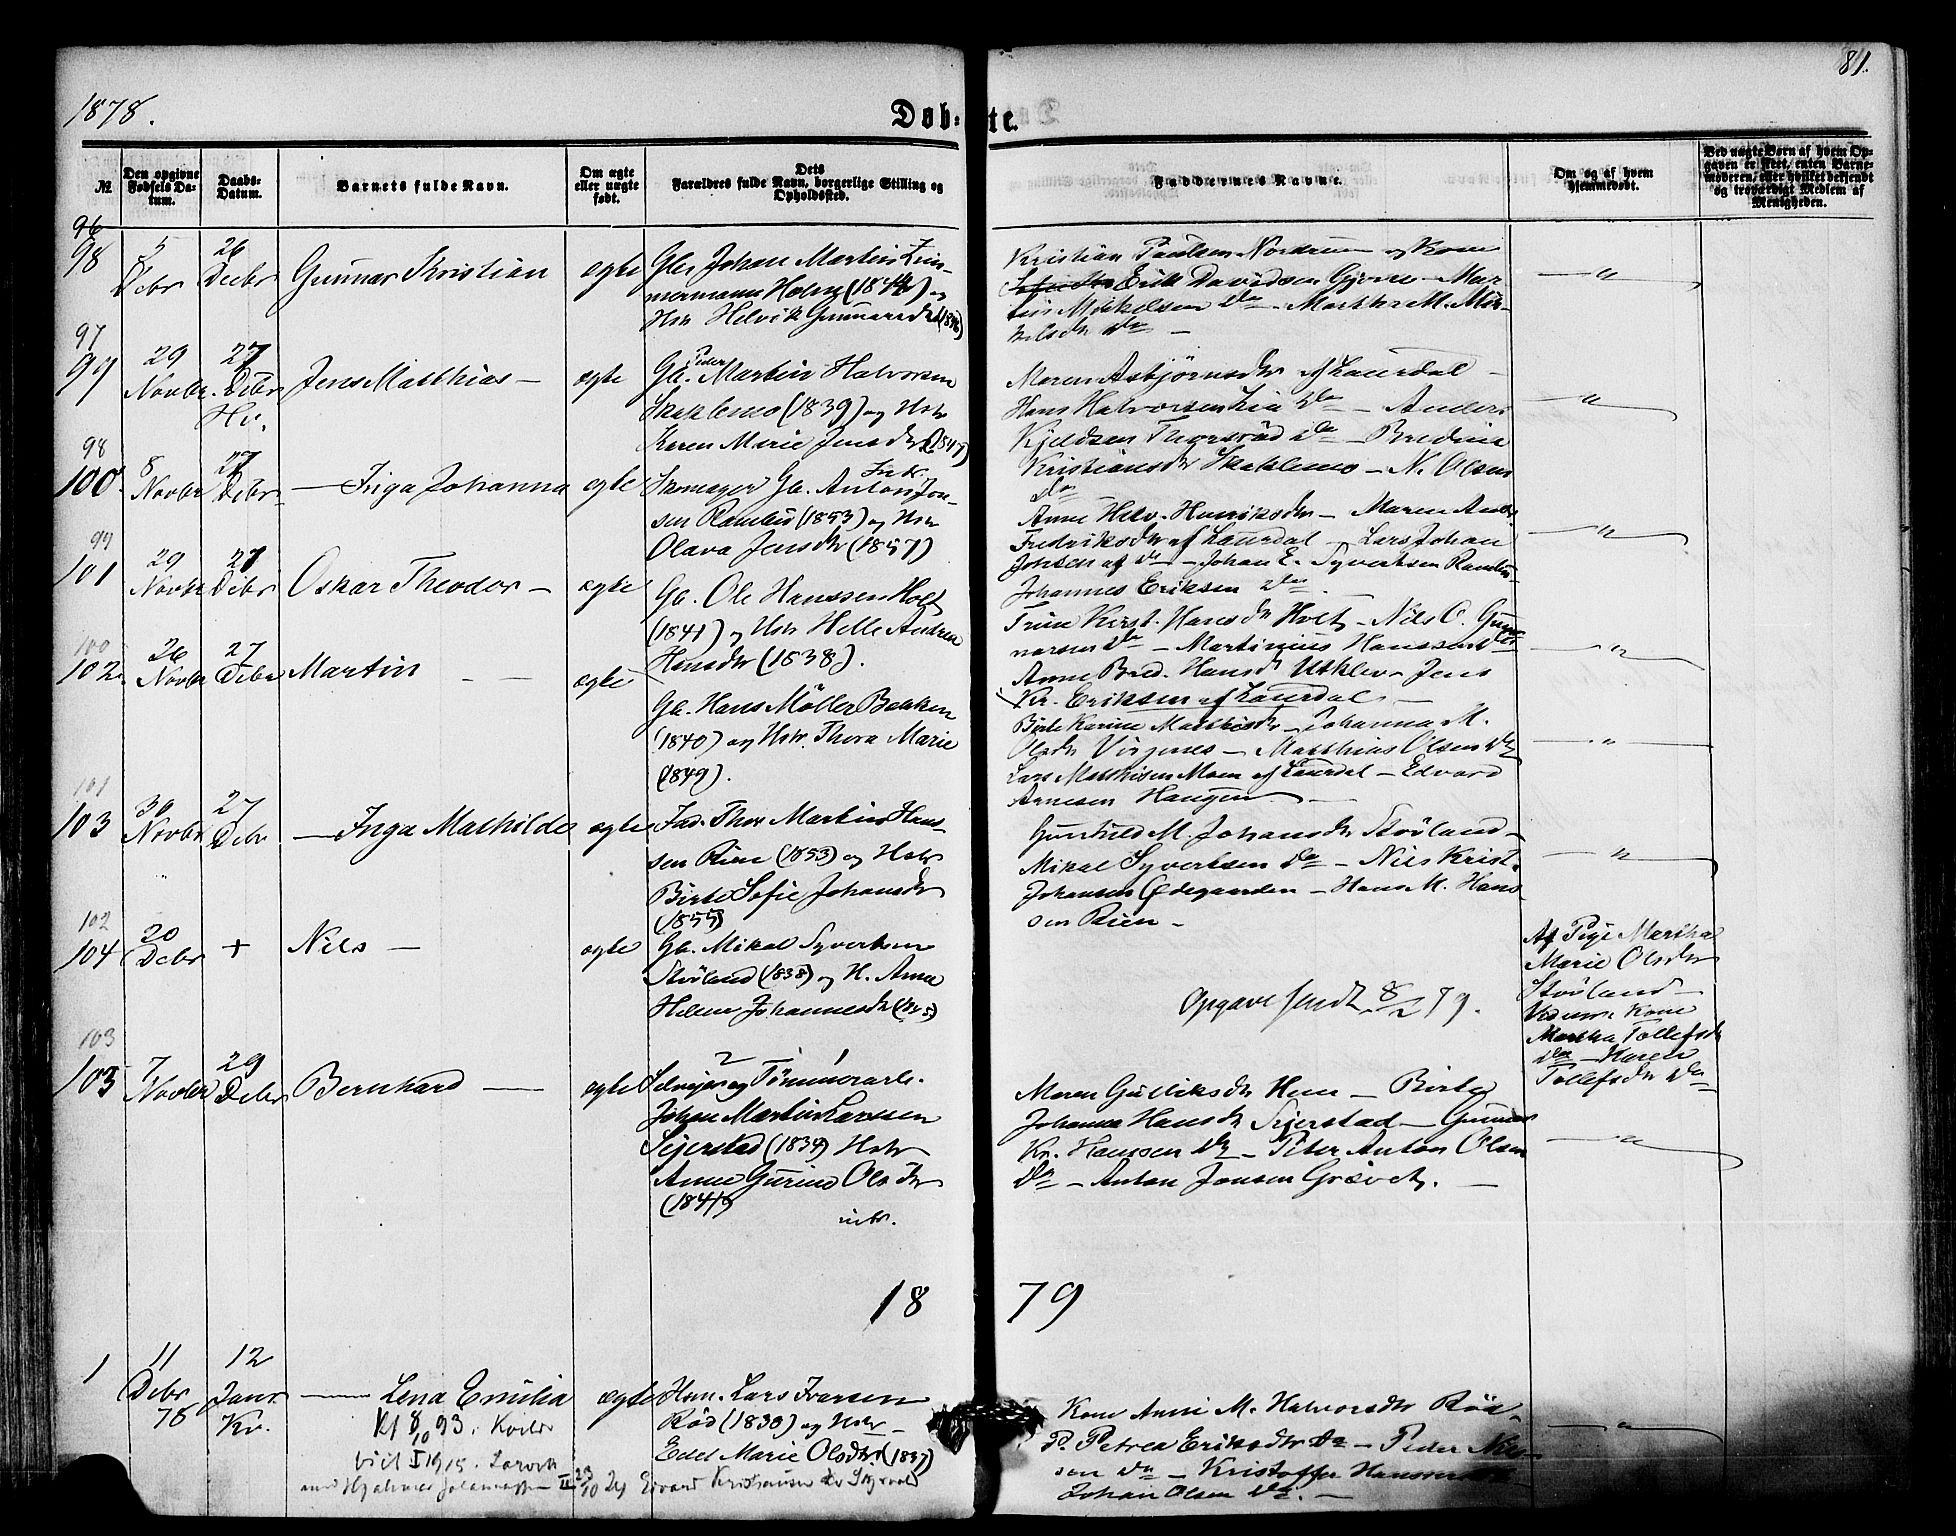 1878.
Døb-
te.
81.
№
Den opgivne Fødsels Datum.
Daabs-Datum.
Barnets fulde Navn.
Om ægte eller uægte født.
Dets Forældres fulde Navn, borgerlige Stilling og Opholdssted.
Faddernes Navne.
Om og af hvem hjemmedøbt.
Ved uægte Børn af hvem Opgaven er skeet, enten Barnemoderen, eller hvilket bekjendt og troværdigt Medlem af Menigheden.
96
98
5 Debr
26 Decbr
Gunnar Kristian
ægte
Johan Martin Zim-
mermann Holm (1844) og
Hstr Helvik Gunnarsdr (1846)
Kristian Paulsen Nordrum og Kone
Erik Davidsen Gjone - Mar-
tin Mikkelsen do - Marthe M. Mik-
kelsdr do -
97
99
29 Novbr
27 Debr
Hv.
Jens Matthias -
ægte
Gb. Peder Martin Halvorsen
Skaklemo (1839) og Hstr
Karen Marie Jensdr (1847)
Maren Asbjørnsdr af Laurdal -
Hans Halvorsen Lia do - Anders
Kjeldsen Thorsrød do - Bredine
Kristiansdr Skaklemo - N. Olsen
do
98
100
8 Novbr
27 Debr
- Inga Johanna
ægte
Skomager Gb. Anton Jon-
sen Ramlus (1853) og Hstr
Olava Jensdr (1857)
Anne Helv. Henriksdr - Maren And.
Fredriksdr af Laurdal - Lars Johan
Johsen af do - Johan E. Syvertsen Ramlus-
Johannes Eriksen do -
99
101
29 Novbr
27 Debr
Oskar Theodor -
ægte
Gb. Ole Hanssen Holt
(1841) og Hstr Helle Andrea
Hansdr (1838).
Trine Kirst. Hansdr Holt - Nils O. Gun-
narsen do - Martinius Hanssen do
Anne Bred. Hansdr Utklev - Jens
Kr. Eriksen af Laurdal -
100
102
26 Novbr
27 Debr
Martin - -
ægte
Gb. Hans Møller Bakken
(1840) og Hstr. Thora Marie
(1849).
Birte Karine Mathisdr - Johanna M.
Olsdr Virgenes - Matthias Olsen do
Lars Matthisen Moen af Laurdal - Edvard
Arnesen Haugen -
101
103
30 Novbr
27 Debr
- Inga Mathilde
ægte
Ind. Thor Martin Hans-
sen Rien (1853) og Hstr
Birte Sofie Johansdr
(1855)
Gunhild M. Johansdr Støvland -
Mikal Syvertsen do - Nils Krist.
Johansen Ødegaarden - Hans M. Hans-
sen Rien -
102
104
20 Debr
+
Nils -
ægte
Gb. Mikal Syvertsen
Støvland (1838) og H. Anne
Helene Johannesdr (1845)
Opgave sendt 8/2 79.
Af Pige Martha
Marie Olsdr
Støvland -
Kone
Martha Tollefsdr
do - Karen
Tollefsdr do
103
105
7 Novbr
29 Debr
Bernhard -
ægte
Selveier og Tømmerarb.
Johan Martin Larssen
Sejerstad (1834) Hstr
Anne Gurine Olsdr
(1841)
Maren Gulliksdr Hem - Birte
Johanna Hansdr Sejerstad - Gunnar
Kr. Hanssen do - Peter Anton Olsen
do - Anton Jonsen Grævet. -
18
79
1
11 Debr 78
12 Janr
Kv.
- Lena Emilia
ægte
Hsm. Lars Ivarsen
Rød (1830) og Hstr -
Edel Marie Olsdr (1837)
Kone Anne M. Halvorsdr Rød -
P. Petrea Eriksdr do - Peder Niel-
sen do - Kristoffer Hanssen
Johan Olsen do. -
Kf 8/10 93. Kvelde
viet I 1915. Larvik
med Hjalmar Johannessen II 23/10 24 Edvard Kristiansen